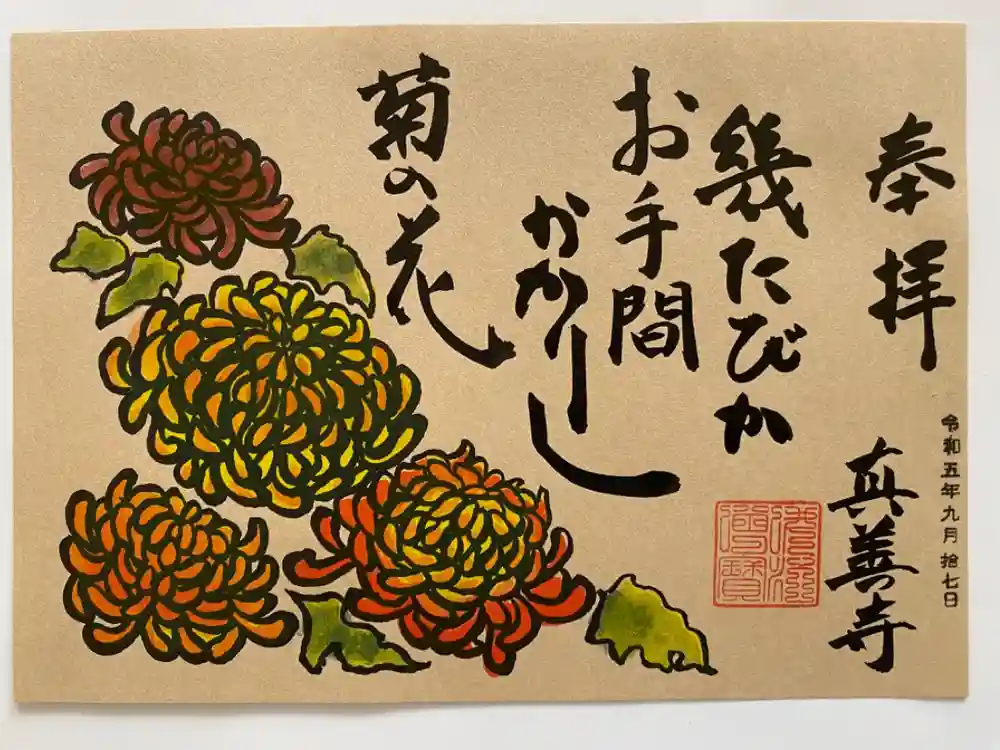 奉拝
令和五年九月拾七日
真善寺
幾たびか
お手間
かかりし
菊の花